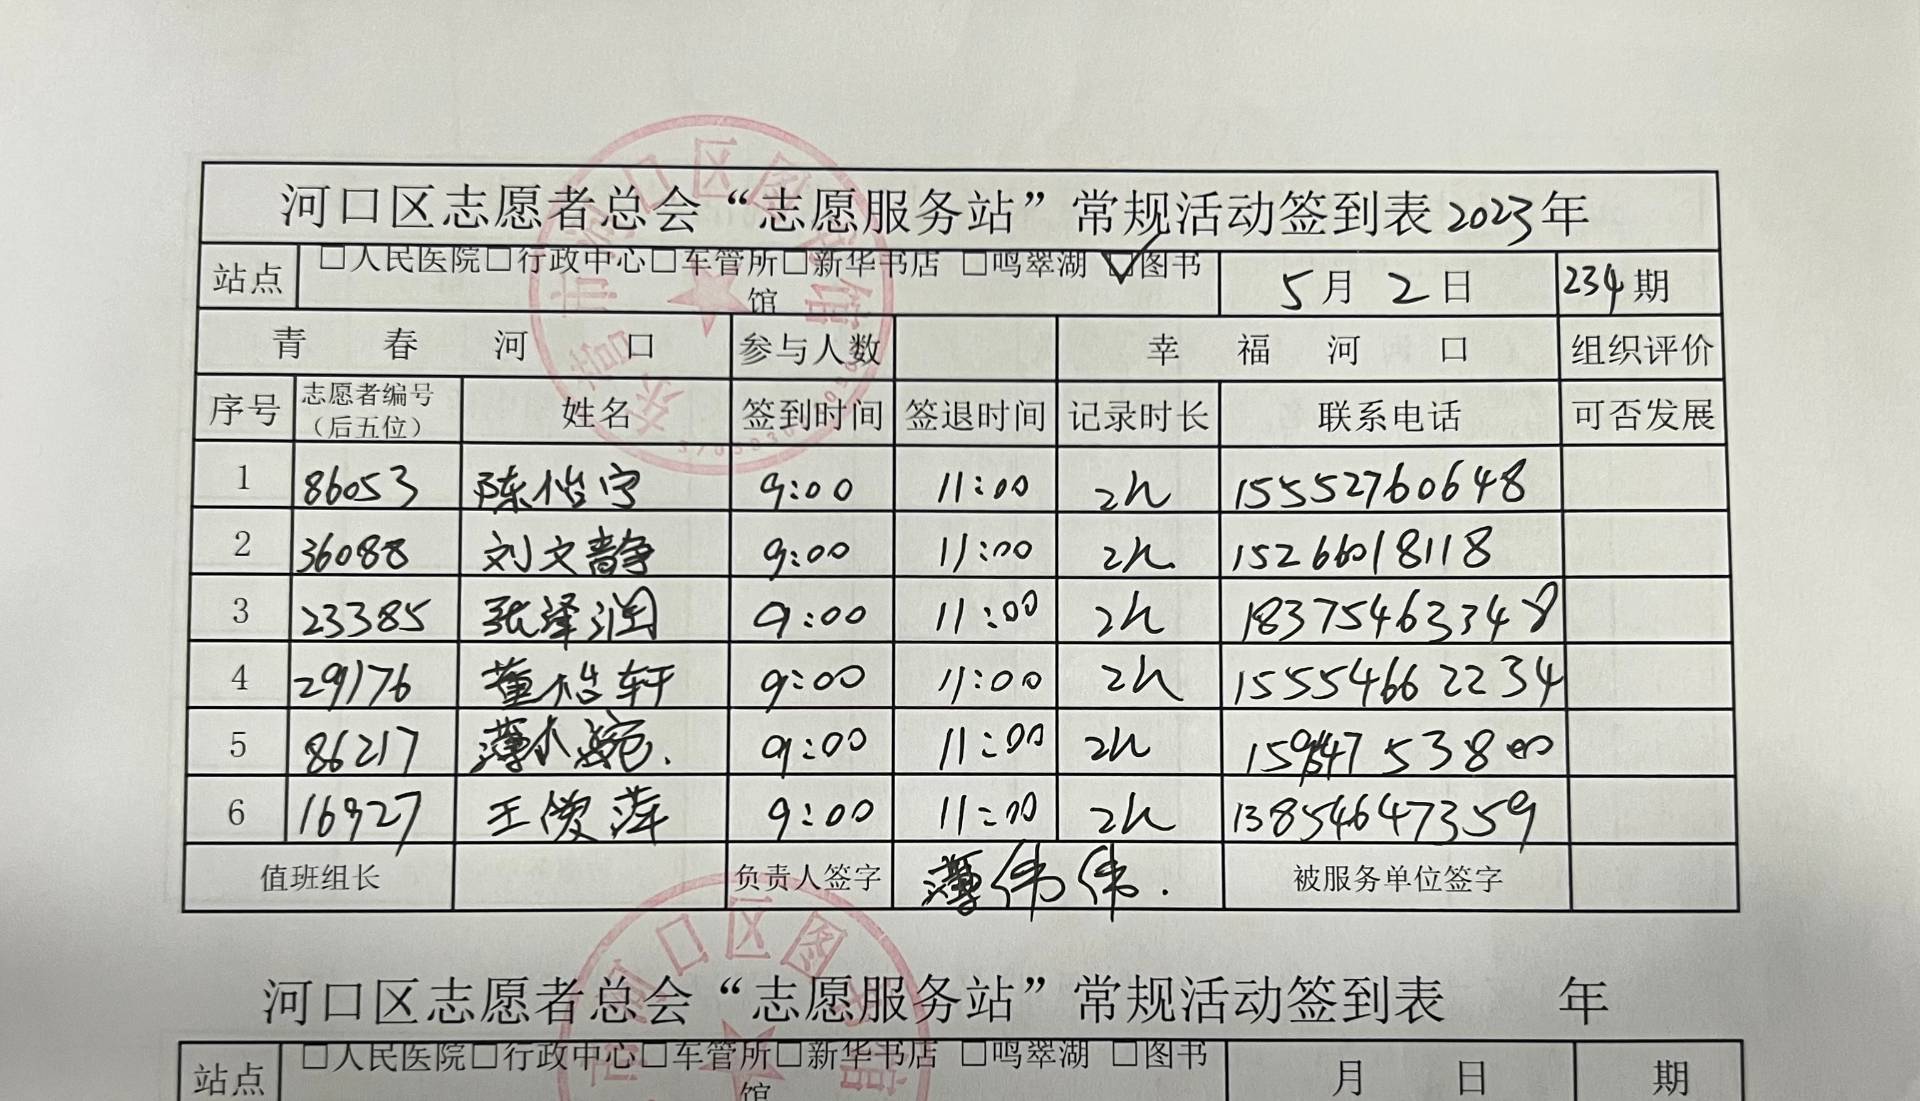 河口区志愿者总会“志愿服务站”常规活动签到表2023年
站点 □人民医院□行政中心□车管所□新华书店 □鸣翠湖 ☑图书馆 5月2日 234期
青春河口 参与人数 幸福河口 组织评价
序号 志愿者编号（后五位） 姓名 签到时间 签退时间 记录时长 联系电话 可否发展
1 86053 陈怡宇 9:00 11:00 2h 15552760648
2 36088 刘文静 9:00 11:00 2h 15266018118
3 23385 张泽润 9:00 11:00 2h 18375463348
4 29176 董楷轩 9:00 11:00 2h 15554662234
5 86217 薄小婉. 9:00 11:00 2h
6 16927 王俊萍 9:00 11:00 2h 13854647359
值班组长 负责人签字 薄伟伟. 被服务单位签字
河口区志愿者总会“志愿服务站”常规活动签到表 年
站点 □人民医院□行政中心□车管所□新华书店 □鸣翠湖 □图书馆 月 日 期